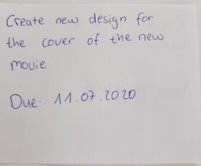 Create new design for
the cover of the new
movie
Due: 11.07.2020